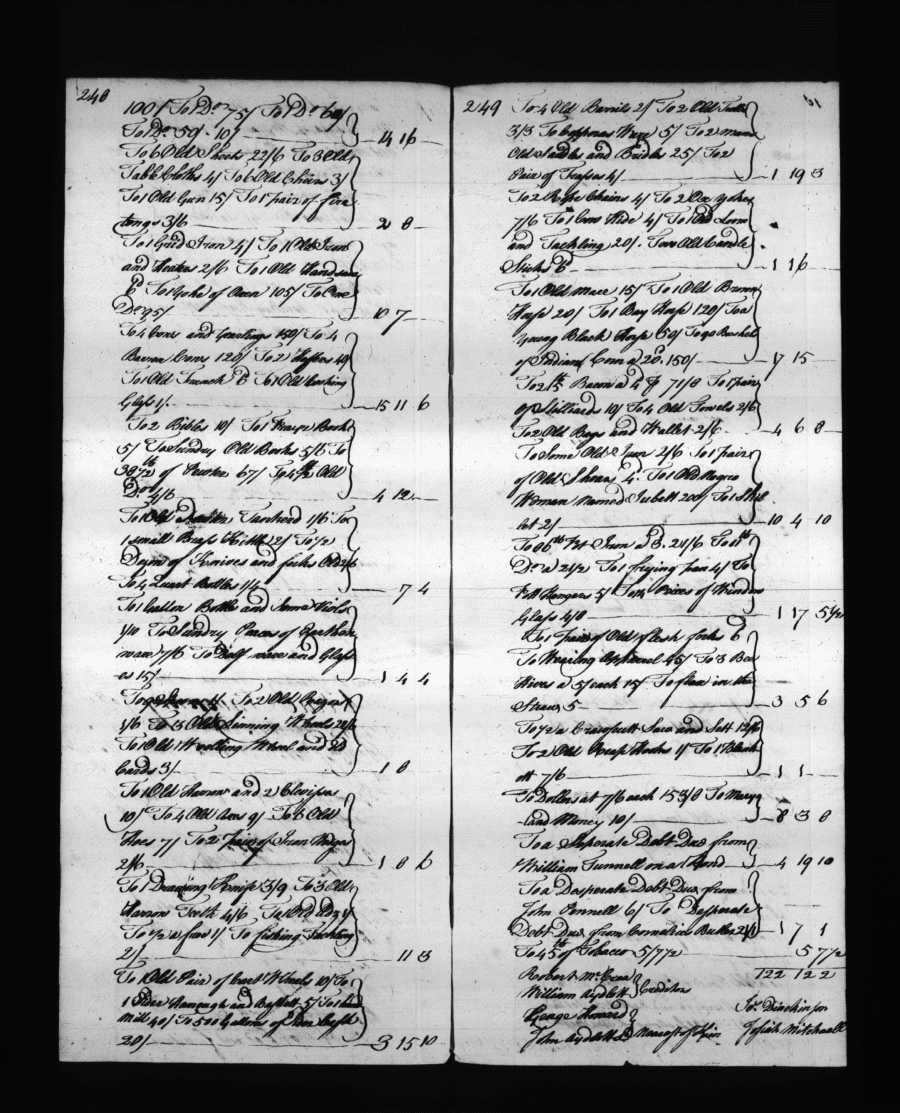 248
100/ To 1 Do 75/ To 1 Do 60/
To 1 Do 50/ 10/ 14 16
To 6 Old Sheets 22/6 To 3 Old
Table Cloths 4/ To 6 Old Chairs 3/
To 1 Old Gun 15/ To 1 pair of fire
tongs 3/6 2 8
To 1 Grid Iron 4/ To 1 Old Iron
and Heaters 2/6 To 1 Old Handsaw
To 1 Yoke of Oxen 105/ To One
Do 95/ 10 7
To 4 Cows and Yearlings 150/ To 4
Barren Cows 120/ To 2 Heifers 40/
To 1 Old Trunk To 1 Old Looking
Glass 1/ 15 11 6
To 2 Bibles 10/ To 1 Prayer Book
5/ To Sundry Old Books 5/6 To
of Pewter 67/ To Old
Do 4/6 4 12
To 1 Old Tankerd 1/6 To
1 small Brass Kittle 2/ To 1/2
Dozen of Knives and forks Old 2/6
To 4 Quart Bottles 1/4 7 4
To 1 Gallon Bottle and Some Viols
1/10 To Sundry Pieces of Earthen
ware 7/6 To Delf ware and Glass
es 15/ 1 4 4
To 2 Old
1/6 To 3 Old Linning Wheels
To 1 Old Woolling Wheel and Old
Cards 3/ 1 8
To 1 Old Harrow and 2 Clevises
10/ To 4 Old Axes 9/ To 3 Old
Hoes 7/ To 2 pair of Iron Wedges
2/6 1 8 6
To 1 Drawing Knife 3/9 To 3 Old
Harrow Teeth 4/6 To 1 Old Adz 1/
To 1/2 a 1/ To fishing Tackling
2/ 11 3
To 1 Old Pair of Cart Wheels 10/ To
1 Old and Baskett 5/ To 1 hand
Mill 40/ To 500 Gallons of Cask
20/ 3 15 10
249 To 4 Old Barrels 2/ To 2 Old
3/3 To 5/ To 2 mans
Old Saddles and Bridles 25/ To 2
Pair of Traises 4/ 1 19 3
To 2 Rope Chains 4/ To 2 Ox Yokes
7/6 To 1 Cow Hide 4/ To 1 Old Loom
and Tackling 20/ Two Old Candle
Sticks 1 16
To 1 Old Mare 15/ To 1 Old Brown
Horse 20/ To 1 Bay Horse 120/ To a
Young Black Horse 50/ To 90 Bushels
of Indian Corn a 20 150/ 17 15
Bacon a 4 71/8 To 1 pair
of Stilliards 10/ To 4 Old Towels 2/6
To 2 Old Bags and Wallet 2/6 4 6 8
To Some Old Iron 2/6 To 1 pair
of Old Shears 4 To 1 Old Negro
Woman Named Isabell 200/ To 1
let 2/ 10 4 10
Pot Iron a 3 21/6 To
Do a 2 1/2 To 1 frying pan 4/ To
Pott Hangers 5/ To Pieces of Window
Glass 4/8 1 17 5 1/2
To 1 pair of Old flesh forks 6
To Wearing Apparrel 45/ To 3 Bee
Hives a 5/ each 15/ To flax in the
Straw 5 3 5 6
To 1/2 a Crosscutt Saw and Sett 12/6
To 2 Old Reap Hooks 1/ To 1 Blank
ett 7/6 1 1
To Dollers at 7/6 each 153/8 To Mary
land Money 10/ 8 3 8
To a Seperate Debt Due from
William Tunnell on a Bond 4 19 10
To a Desperate Debt Due from
John Pennell 6/ To Desperate
Debt Due from Cornelius 21/1 1 7 1
To 45 of Tobacco 5/7 1/2 5 7 1/2
Robert McCrea 122 12 2
William Aydelett Creditor
George Howard Jos. Dinekinson
John Aydelett Nearest of Kin Josiah Mitchnell